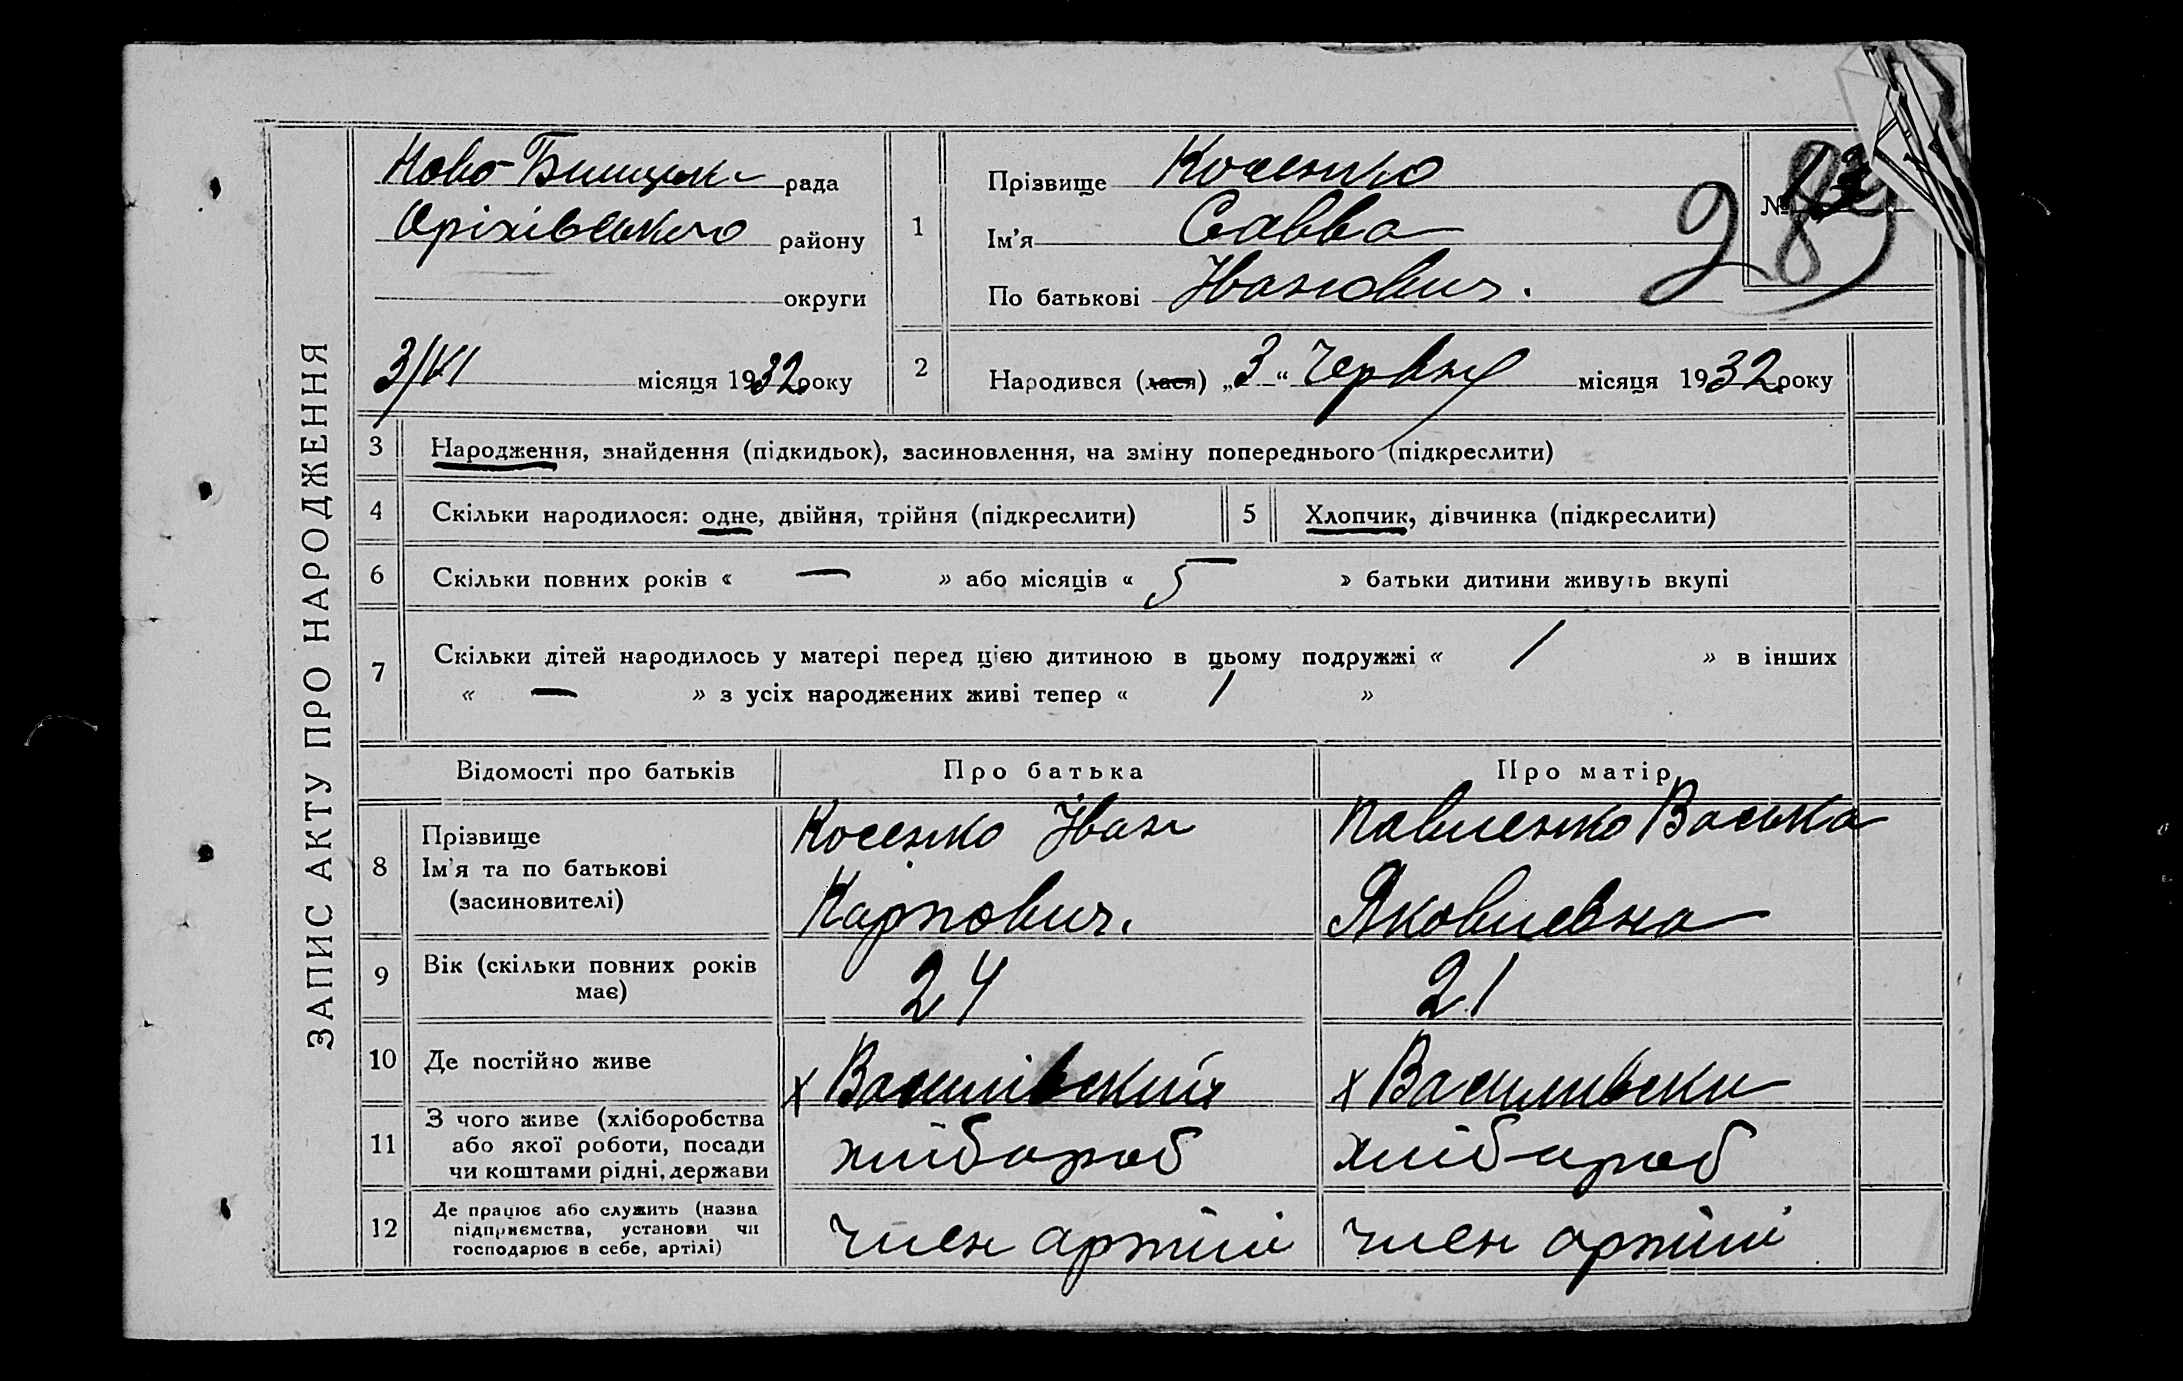 ЗАПИС АКТУ ПРО НАРОДЖЕННЯ
рада
Оріхівського району
округи
3/VI місяця 1932 року
1
Прізвище Косенко
Ім'я Савва
По батькові Іванович.
№
2
Народився (лася) „3“ Червня місяця 1932 року
3 Народження, знайдення (підкидьок), засиновлення, на зміну попереднього (підкреслити)
4 Скільки народилося: одне, двійня, трійня (підкреслити) 5 Хлопчик, дівчинка (підкреслити)
6 Скільки повних років « — » або місяців « 5 » батьки дитини живуть вкупі
7 Скільки дітей народилось у матері перед цією дитиною в цьому подружжі « 1 » в інших
« — » з усіх народжених живі тепер « 1 »
Відомості про батьків Про батька Про матір
8 Прізвище
Ім'я та по батькові
(засновителі)
Косенко Іван
Карпович.
Павленко Васька
Яковлевна
9 Вік (скільки повних років
має)
24 21
10 Де постійно живе х Василівский х Василивски
11 З чого живе (хліборобства
або якої роботи, посади
чи коштами рідні, держави
хлібароб хлібароб
12 Де працює або служить (назва
підприємства, установи чи
господарює в себе, артілі)
член артілі член артілі